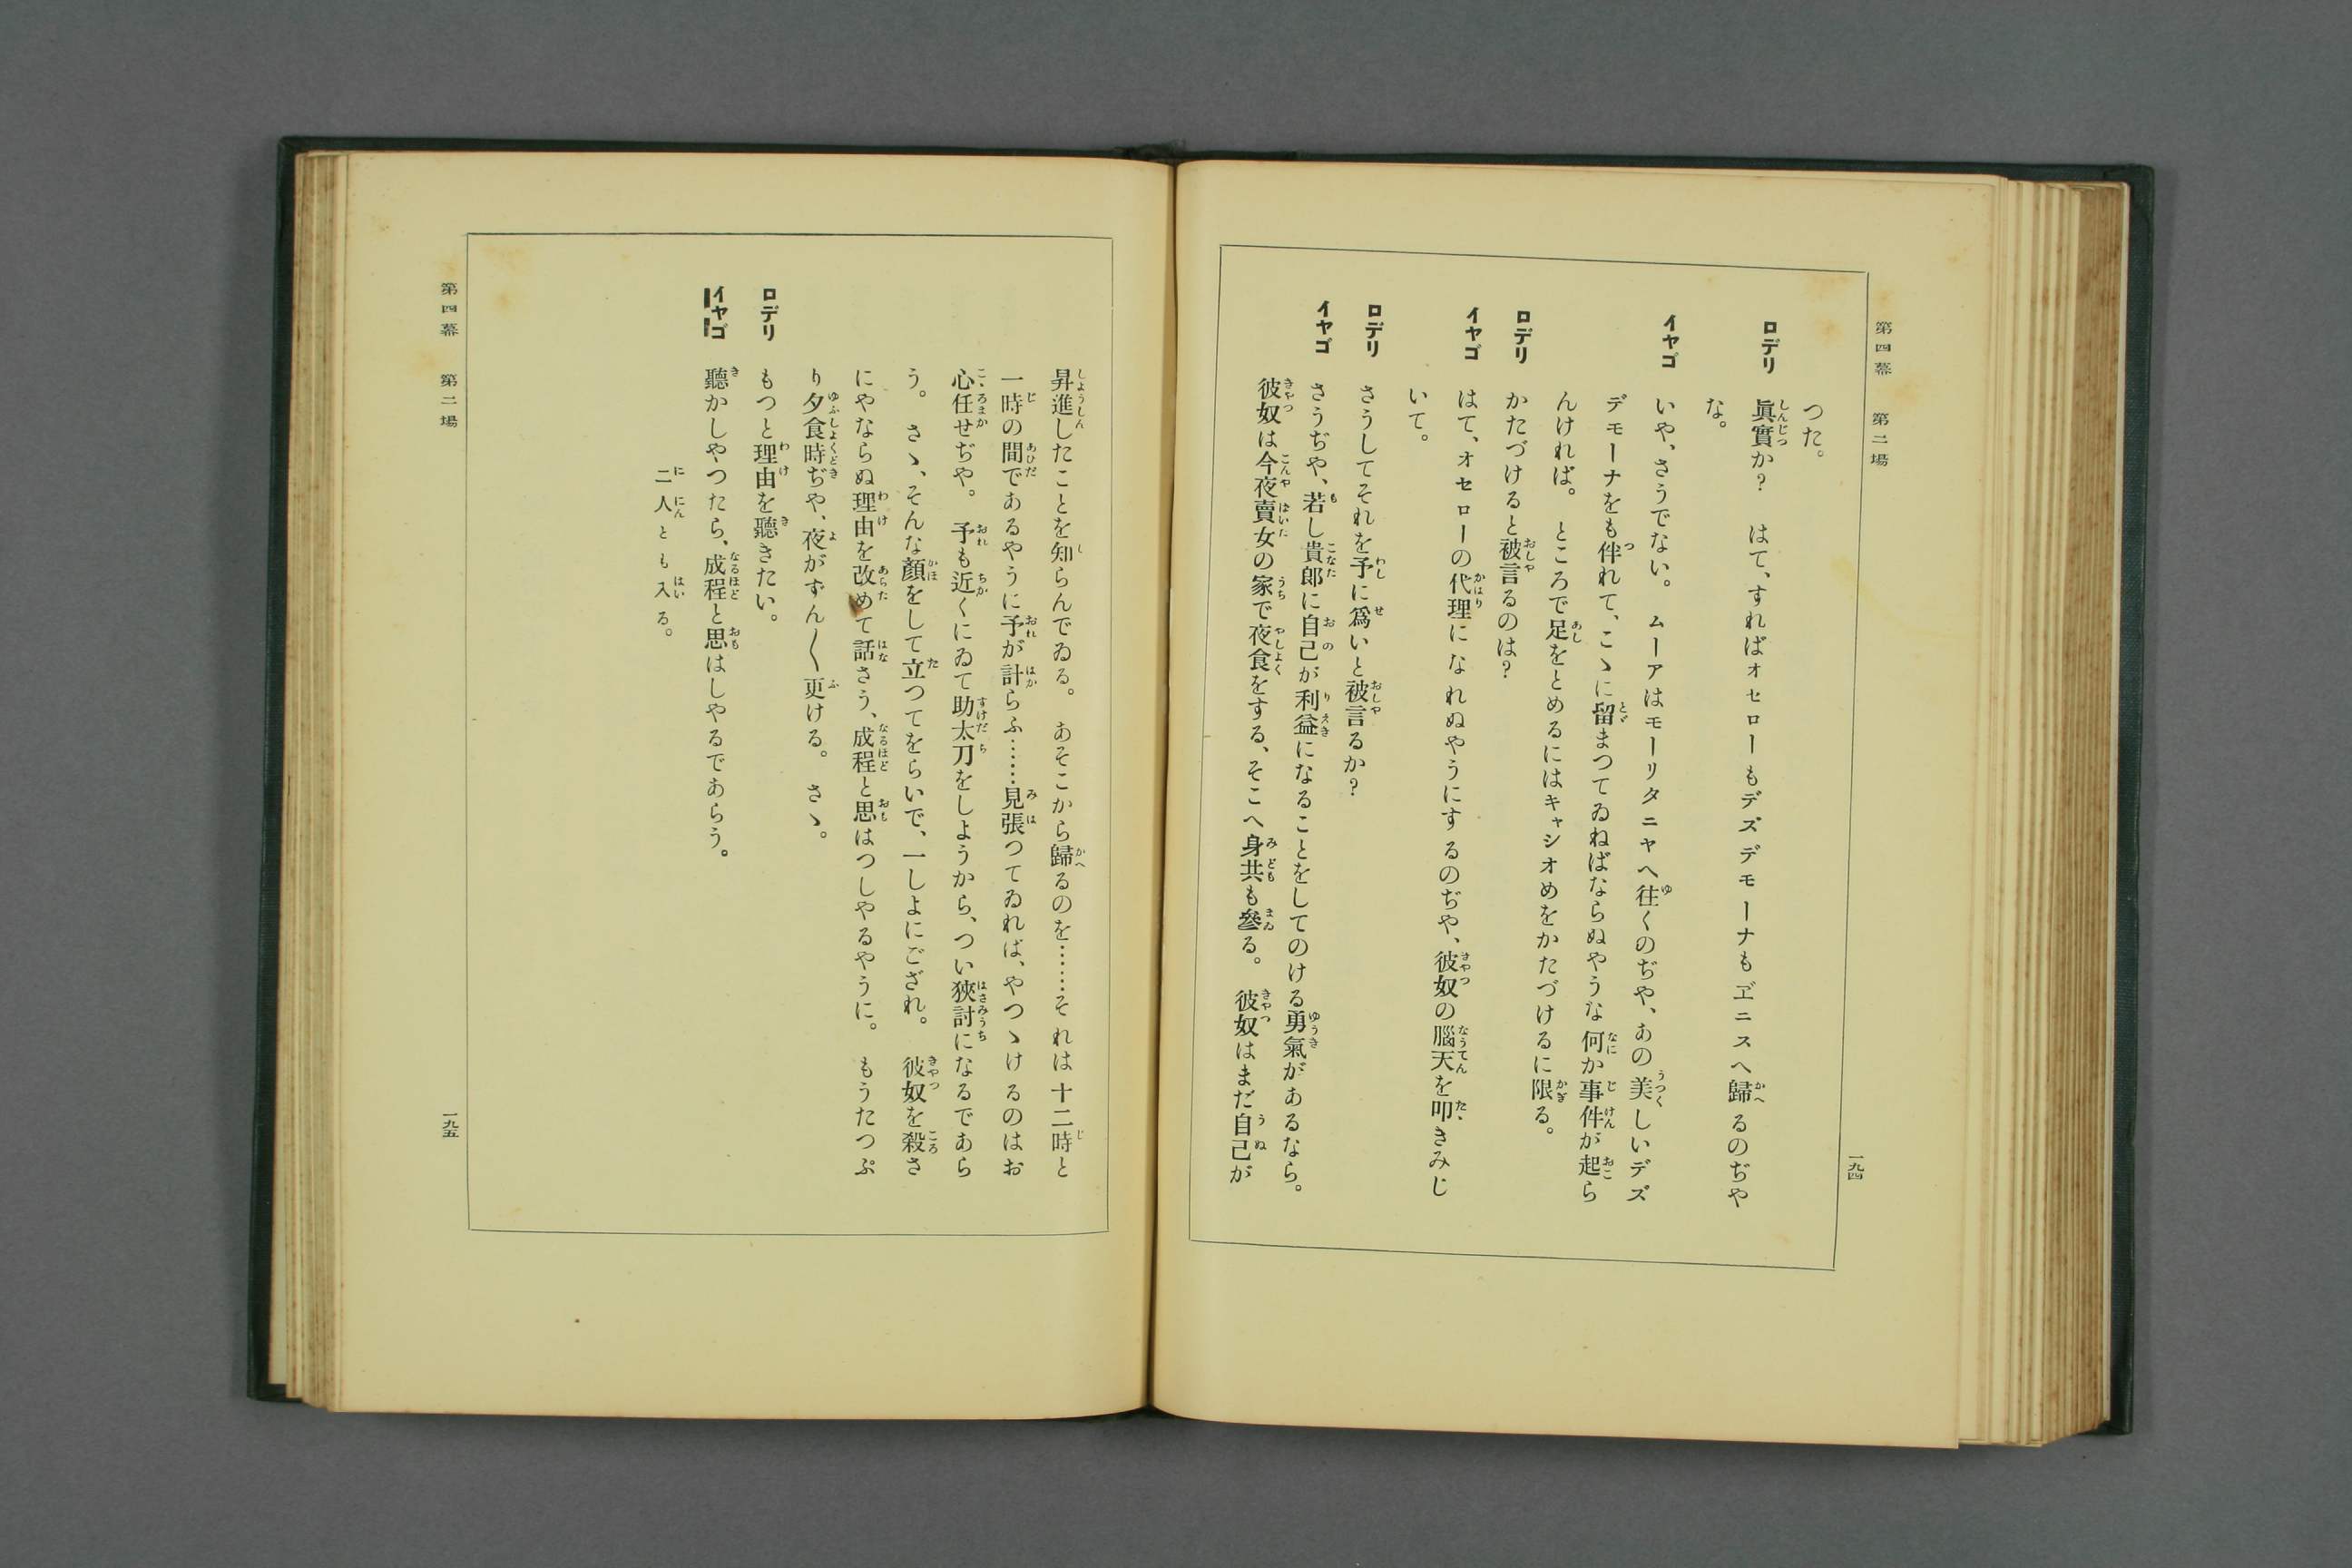 第四幕　第二場
つた。
ロデリ　眞實か？　はて、すればオセローもデズデモーナもヹニスへ歸るのぢや
な。
イヤゴ　いや、さうでない。ムーアはモーリタニヤへ往くのぢや、あの美しいデズ
デモーナをも伴れて、こゝに留まつてゐねばならぬやうな何か事件が起ら
んければ。　ところで足をとめるにはキャシオめをかたづけるに限る。
ロデリ　かたづけると被言るのは？
イヤゴ　はて、オセローの代理になれぬやうにするのぢや、彼奴の腦天を叩きみじ
いて。
ロデリ　さうしてそれを予に爲いと被言るか？
イヤゴ　さうぢや、若し貴郎に自己が利益になることをしてのける勇氣があるなら。
彼奴は今夜賣女の家で夜食をする、そこへ身共も參る。　彼奴はまだ自己が
一九四
昇進したことを知らんでゐる。　あそこから歸るのを……それは十二時と
一時の間であるやうに予が計らふ……見張つてゐれば、やつゝけるのはお
心任せぢや。　予も近くにゐて助太刀をしようから、つい狹討になるであら
う。　さゝ、そんな顏をして立つてをらいで、一しよにござれ。　彼奴を殺さ
にやならぬ理由を改めて話さう、成程と思はつしやるやうに。　もうたつぷ
り夕食時ぢや、夜がずん〱更ける。　さゝ。
ロデリ　もつと理由を聽きたい。
イヤゴ　聽かしやつたら、成程と思はしやるであらう。
二人とも入る。
第四幕　第二場
一九五